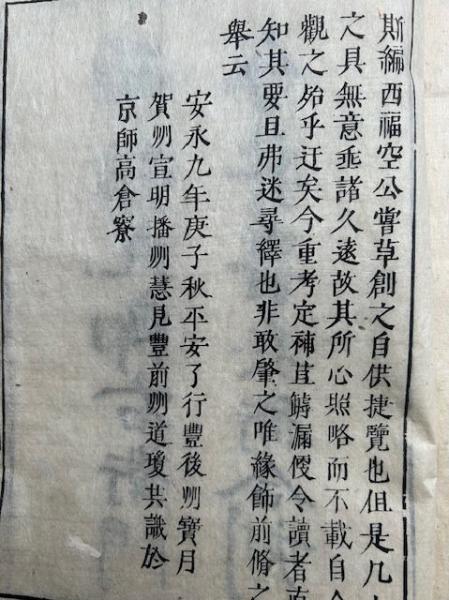 斯編西福空公嘗草創之自供捷覽也但是几
之具無意垂諸久遠故其所心照略而不載自今
觀之殆乎迂矣今重考定補苴罅漏俾令讀者
知其要且弗迷尋繹也非敢肇之唯緣飾前脩之
舉云
安永九年庚子秋平安了行豐後州寶月
賀州宣明播州慧見豐前州道瓊共識於
京師高倉寮